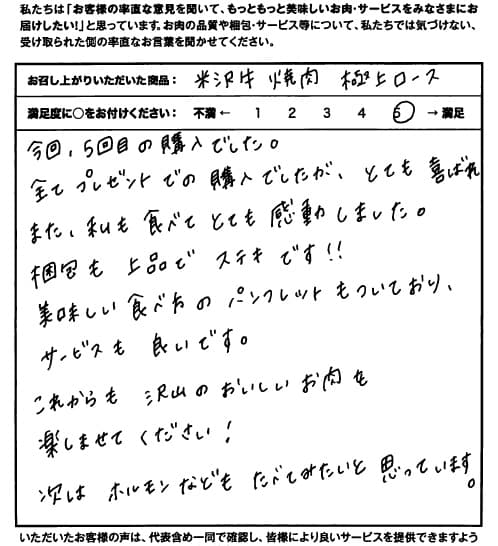 私たちは「お客様の率直な意見を聞いて、もっともっと美味しいお肉・サービスをみなさまにお
届けしたい!」と思っています。お肉の品質や梱包・サービス等について、私たちでは気づけない、
受け取られた側の率直なお言葉を聞かせてください。
お召し上がりいただいた商品： 米沢牛 焼肉 極上ロース
満足度に○をお付けください： 不満 ← 1 2 3 4 5 → 満足
今回、5回目の購入でした。
全てプレゼントでの購入でしたが、とても喜ばれ
また、私も食べてとても感動しました。
梱包も上品でステキです!!
美味しい食べ方のパンフレットもついており、
サービスも良いです。
これからも沢山のおいしいお肉を
楽しませてください!
次はホルモンなどもたべてみたいと思っています。
いただいたお客様の声は、代表含め一同で確認し、皆様により良いサービスを提供できますよう